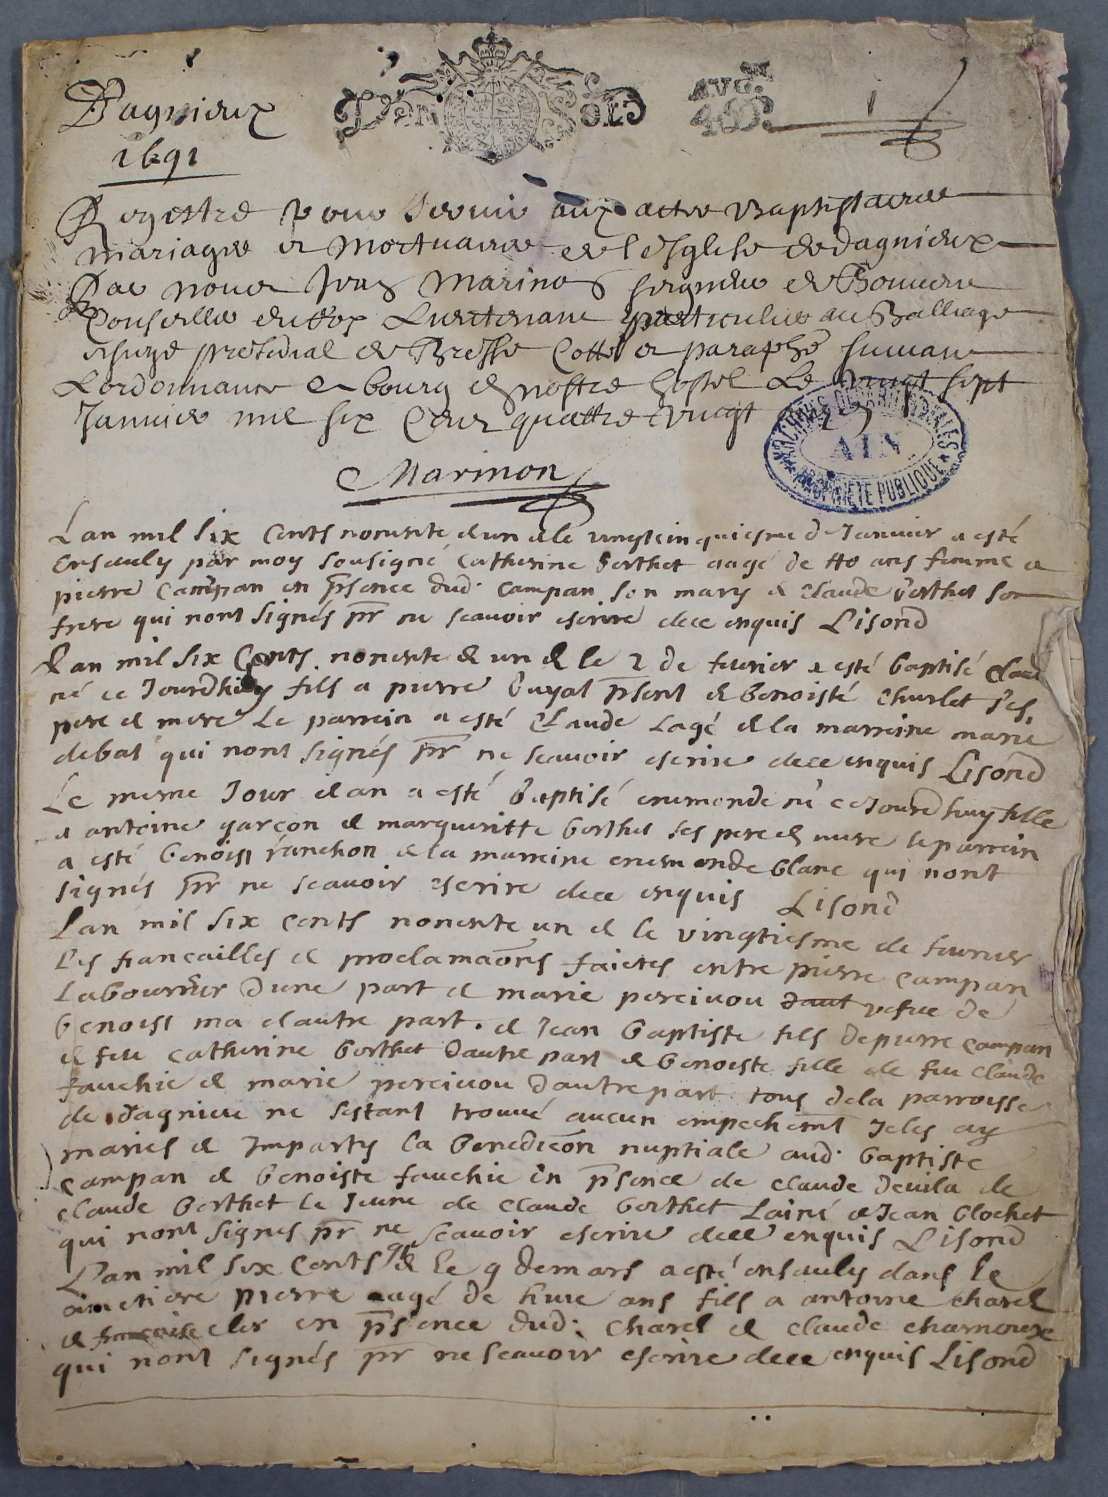 Dagnieux
1691
DEN SOLS
AVG.
1
Registre pour servir aux actes Baptistaires
mariages et mortuaires de l'esglise de dagnieux
Par nous Jean Marinon seigneur de
Conseiller du Roy Lieutenant particulier au Balliage
et siege presidial de Bresse Cotté et paraphé suivant
Lordonnance a bourg en nostre hostel Le vingt sept
Janvier mil six Cent quattre vingt
ARCHIVES DEPARTEMENTALES
AIN
PROPRIETE PUBLIQUE
Marinon
Lan mil six cents nonente et un et le vingtcinquiesme de Janvier a esté
ensevely par moy sousigné catherine berthet aagé de 40 ans femme a
pierre campan en pnsence dud. campan son mary et claude berthet son
frere qui nont signés pr ne scavoir escrire de ce enquis Lisond
Lan mil six Cents nonente et un et le 2 de fevrier a esté baptisé
né ce Jourdhuy fils a pierre buyat psent et benoiste churlet ses
pere et mere Le parrein a esté Claude Lagé et la marreine marie
debat qui nont signés pr ne scavoir escrire de ce enquis Lisond
Le mesme Jour et an a esté baptisé enemonde né ce Jourdhuy fille
a antoine garçon et margueritte berthet ses pere et mere le parrein
a esté benoist ranchon et la marreine enemonde blanc qui nont
signés pr ne scavoir escrire de ce enquis Lisond
Lan mil six cents nonente un et le vingtiesme de fevrier
Les fiancailles et proclamaons faictes entre pierre campan
Laboureur dune part et marie percivou vefve de
benoist ma dautre part. et Jean baptiste fils de pierre campan
et feu catherine berthet dautre part et benoiste fille de feu claude
fauchie et marie percivou dautre part tous de la parroisse
de dagnieu ne sestant trouvé aucun empechemt Je les ay
mariés et Imparty la benedicon nuptiale aud. baptiste
campan et benoiste fauchie en psence de claude devila de
claude berthet le Jeune de claude berthet Lainé et Jean blochet
qui nont signes pr ne scavoir escrire de ce enquis Lisond
Lan mil six cents 91 et le 9 de mars a esté ensevely dans le
cimetiere pierre aagé de huit ans fils a antoine charel
et francoise cler en psence dud. charel et claude charnoux
qui nont signés pr ne scavoir escrire de ce enquis Lisond